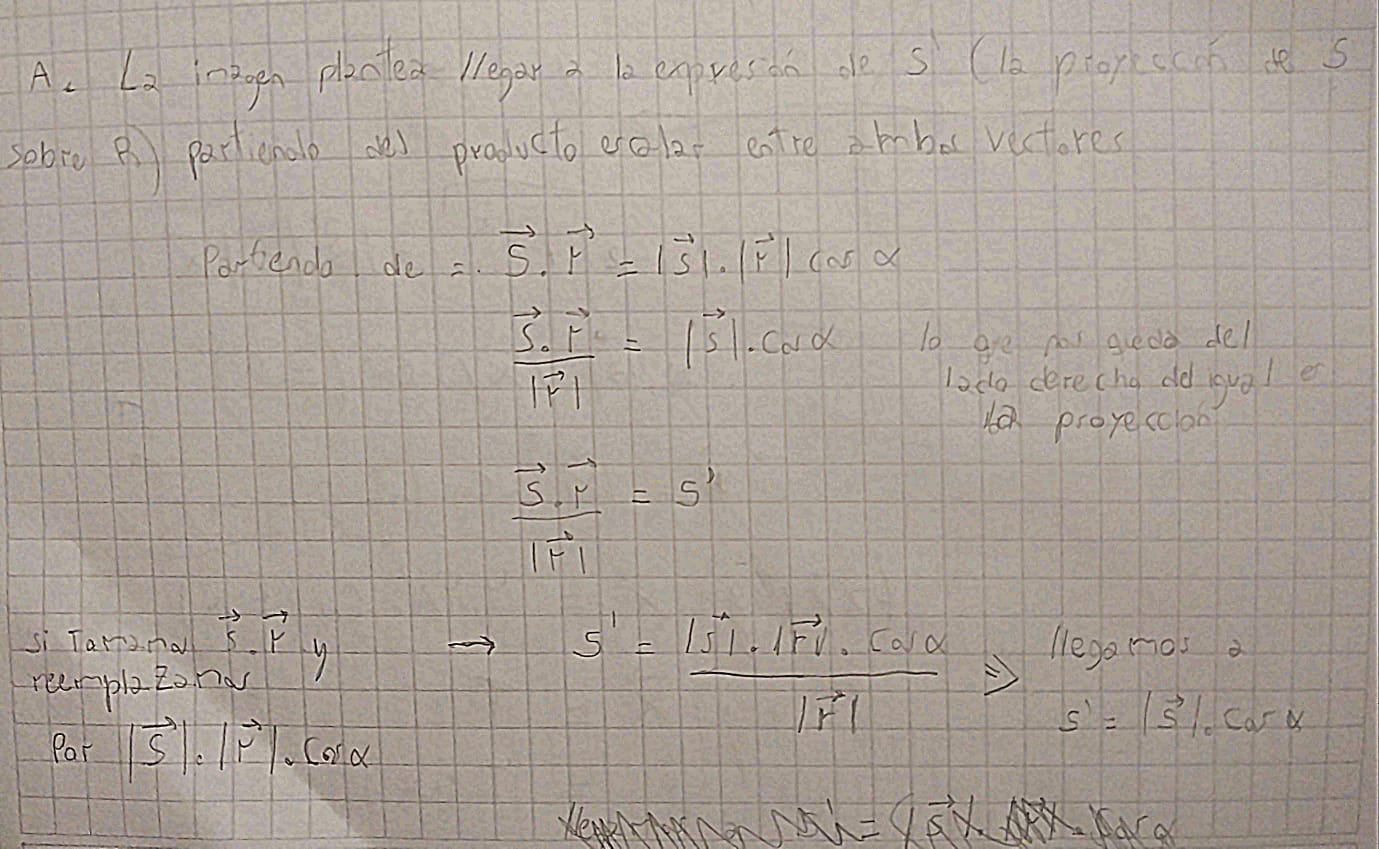 A. La imagen plantea llegar a la expresión de S' (la proyección de S
sobre R) partiendo del producto escalar entre ambos vectores
Partiendo de = \vec{S}.\vec{r} = |\vec{s}|.|\vec{r}| cos α
\frac{\vec{S}.\vec{r}}{|\vec{r}|} = |\vec{s}|.cos α lo que nos queda del
lado derecho del igual es
la proyección
\frac{\vec{S}.\vec{r}}{|\vec{r}|} = S'
si Tomamos \vec{s}.\vec{r} y → S' = \frac{|\vec{s}|.|\vec{r}|.cos α}{|\vec{r}|} ⇒ llegamos a
reemplazamos
s' = |\vec{s}|.cos α
Por |\vec{S}|.|\vec{r}|.cos α